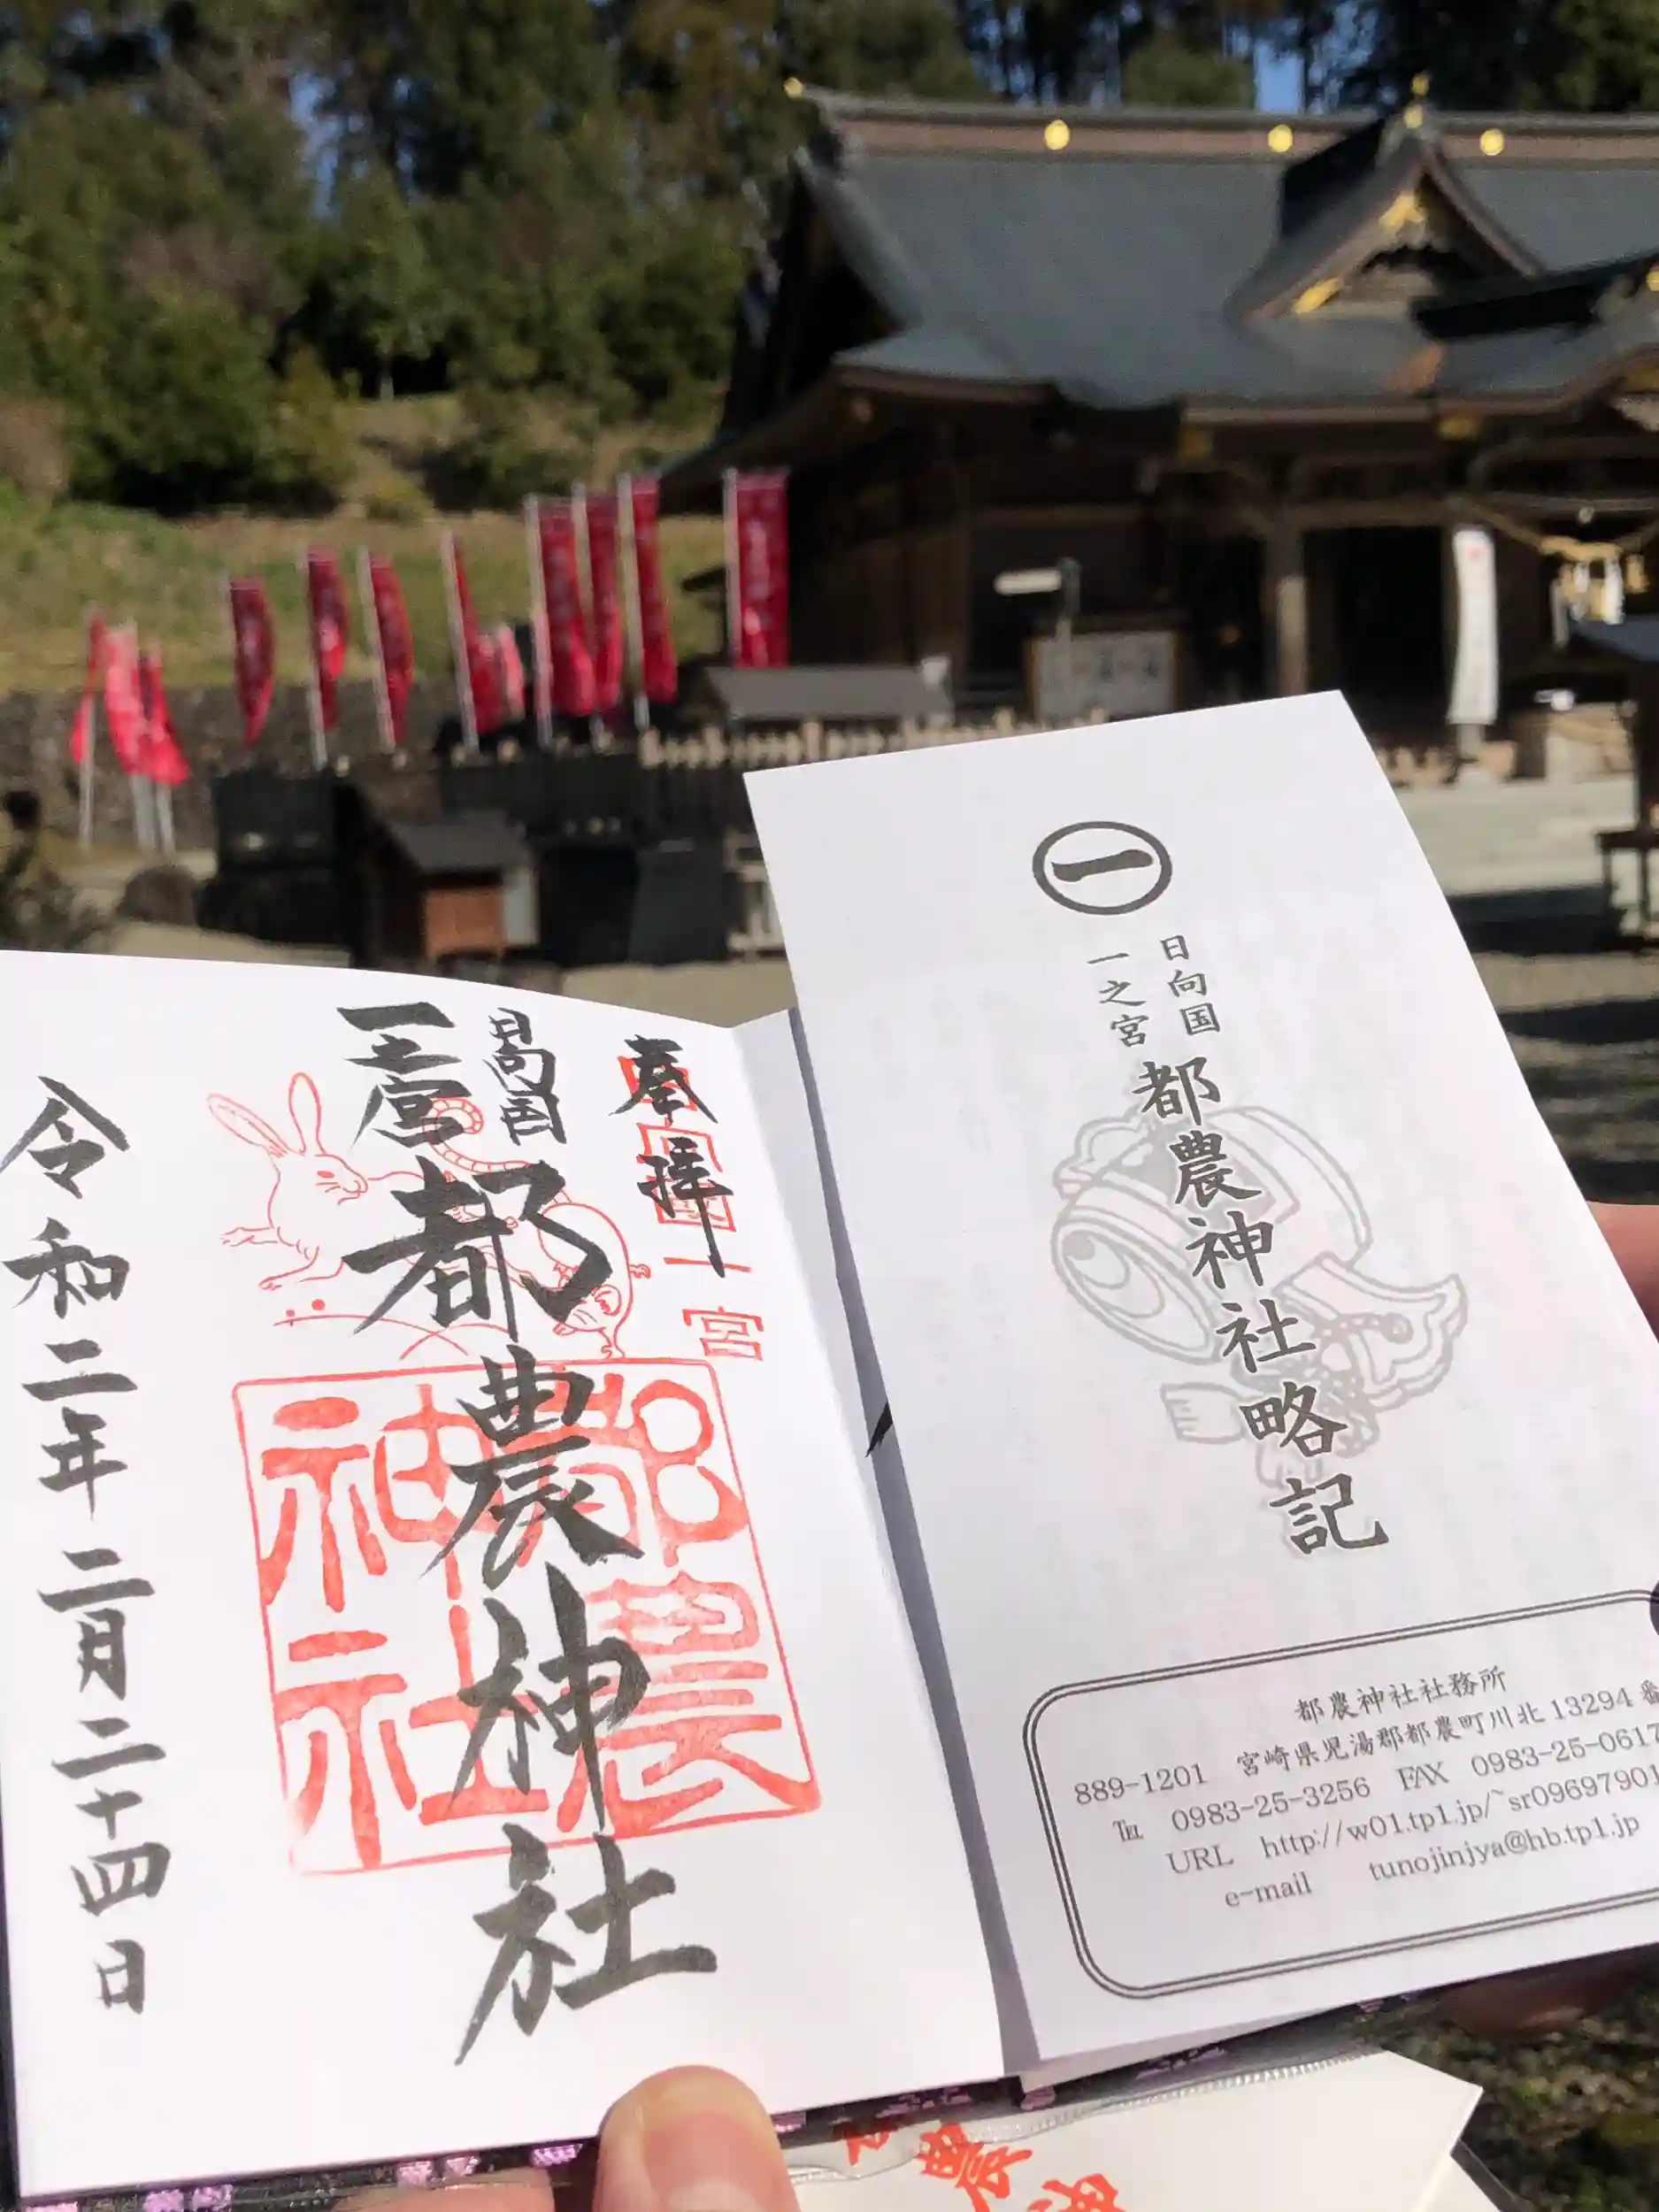 奉拝
日向国
一之宮
都農神社
令和二年二月二十四日
日向国一宮
都農
神社
一
日向国
一之宮
都農神社略記
都農神社社務所
889-1201 宮崎県児湯郡都農町川北13294番
℡ 0983-25-3256 FAX 0983-25-0617
URL http://w01.tp1.jp/~sr09697901
e-mail tunojinjya@hb.tp1.jp